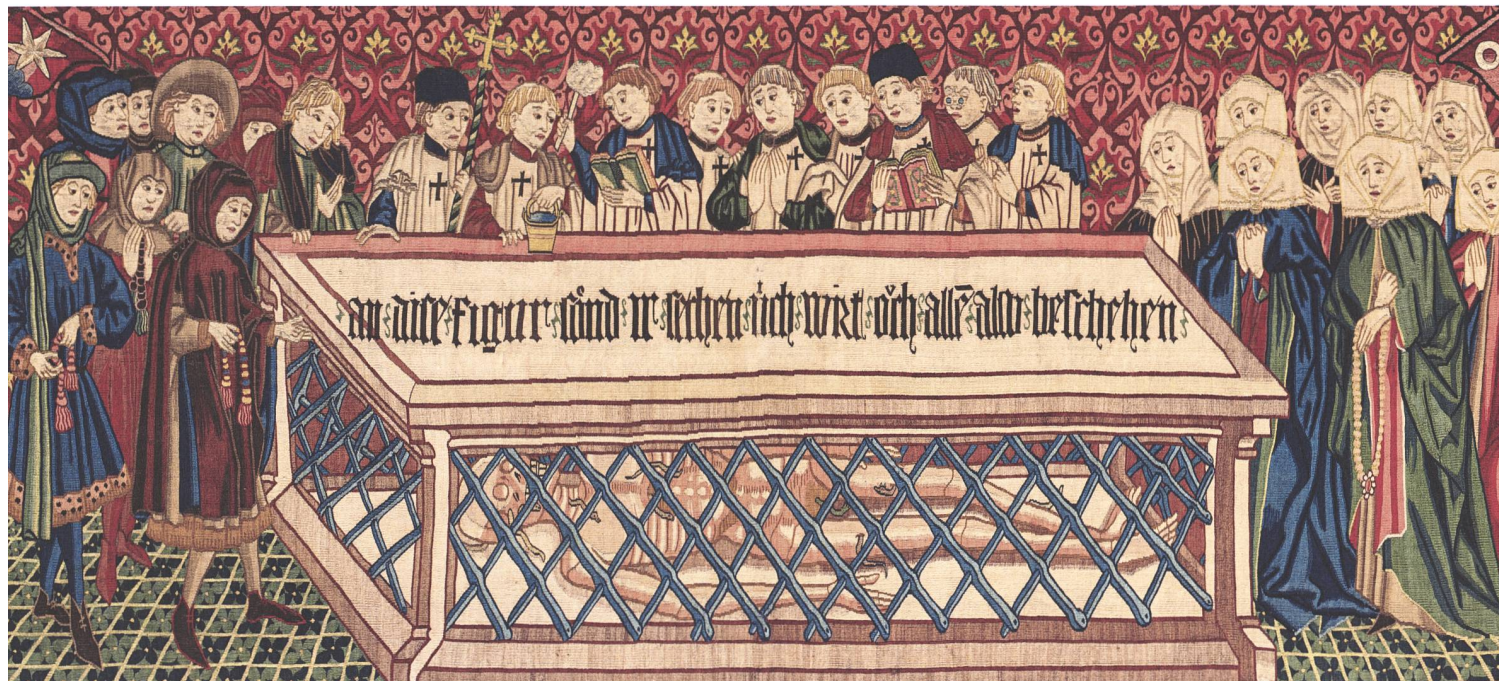 an dise figur sönd ir sechen üch wirt öch allē also beschehen